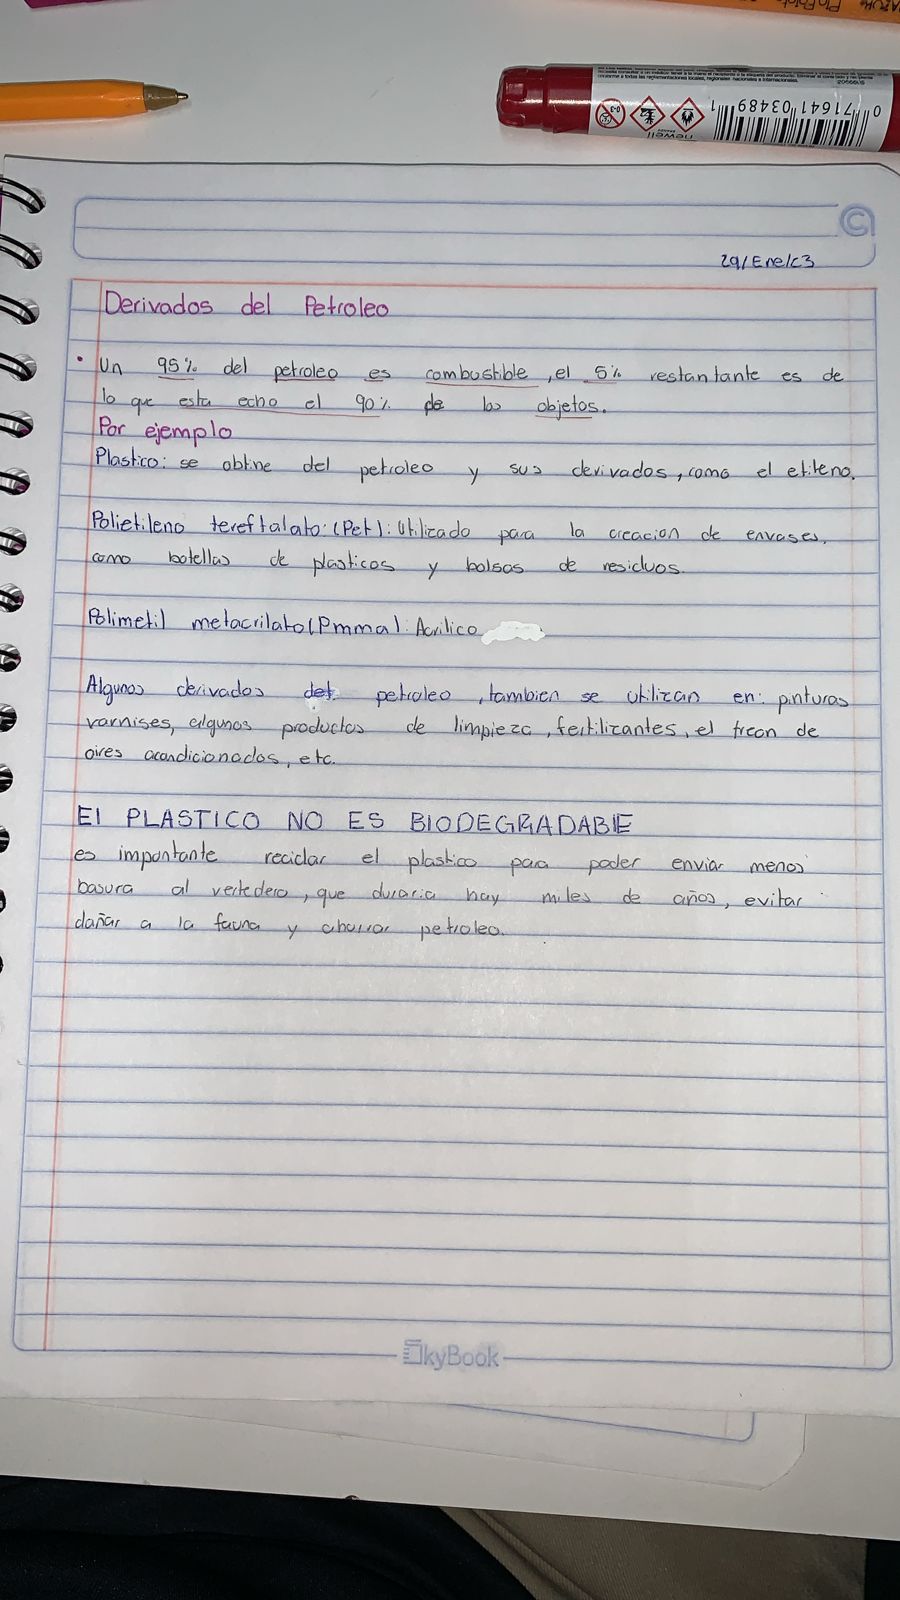 29/Ene/23
Derivados del Petroleo
• Un 95% del petroleo es combustible, el 5% restantante es de
lo que esta echo el 90% de los objetos.
Por ejemplo
Plastico: se obtine del petroleo y sus derivados, como el etileno.
Polietileno tereftalato: (Pet): Utilizado para la creacion de envases.
como botellas de plasticos y bolsas de residuos.
Polimetil metacrilato (Pmma): Acrilico
Algunos derivados del petroleo, tambien se utilizan en: pinturas
varnises, algunos productos de limpieza, fertilizantes, el freon de
aires acondicionados, etc.
El PLASTICO NO ES BIODEGRADABlE
es importante reciclar el plastico para poder enviar menos
basura al vertedero, que duraria hay miles de años, evitar
dañar a la fauna y ahorrar petroleo.
SkyBook
0 71641 03489 1
newell